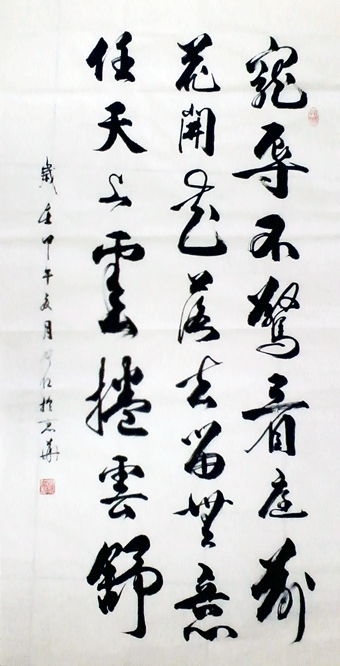 寵辱不驚看庭前
花開花落去留無意
任天上雲捲雲舒
歲在甲午夏月